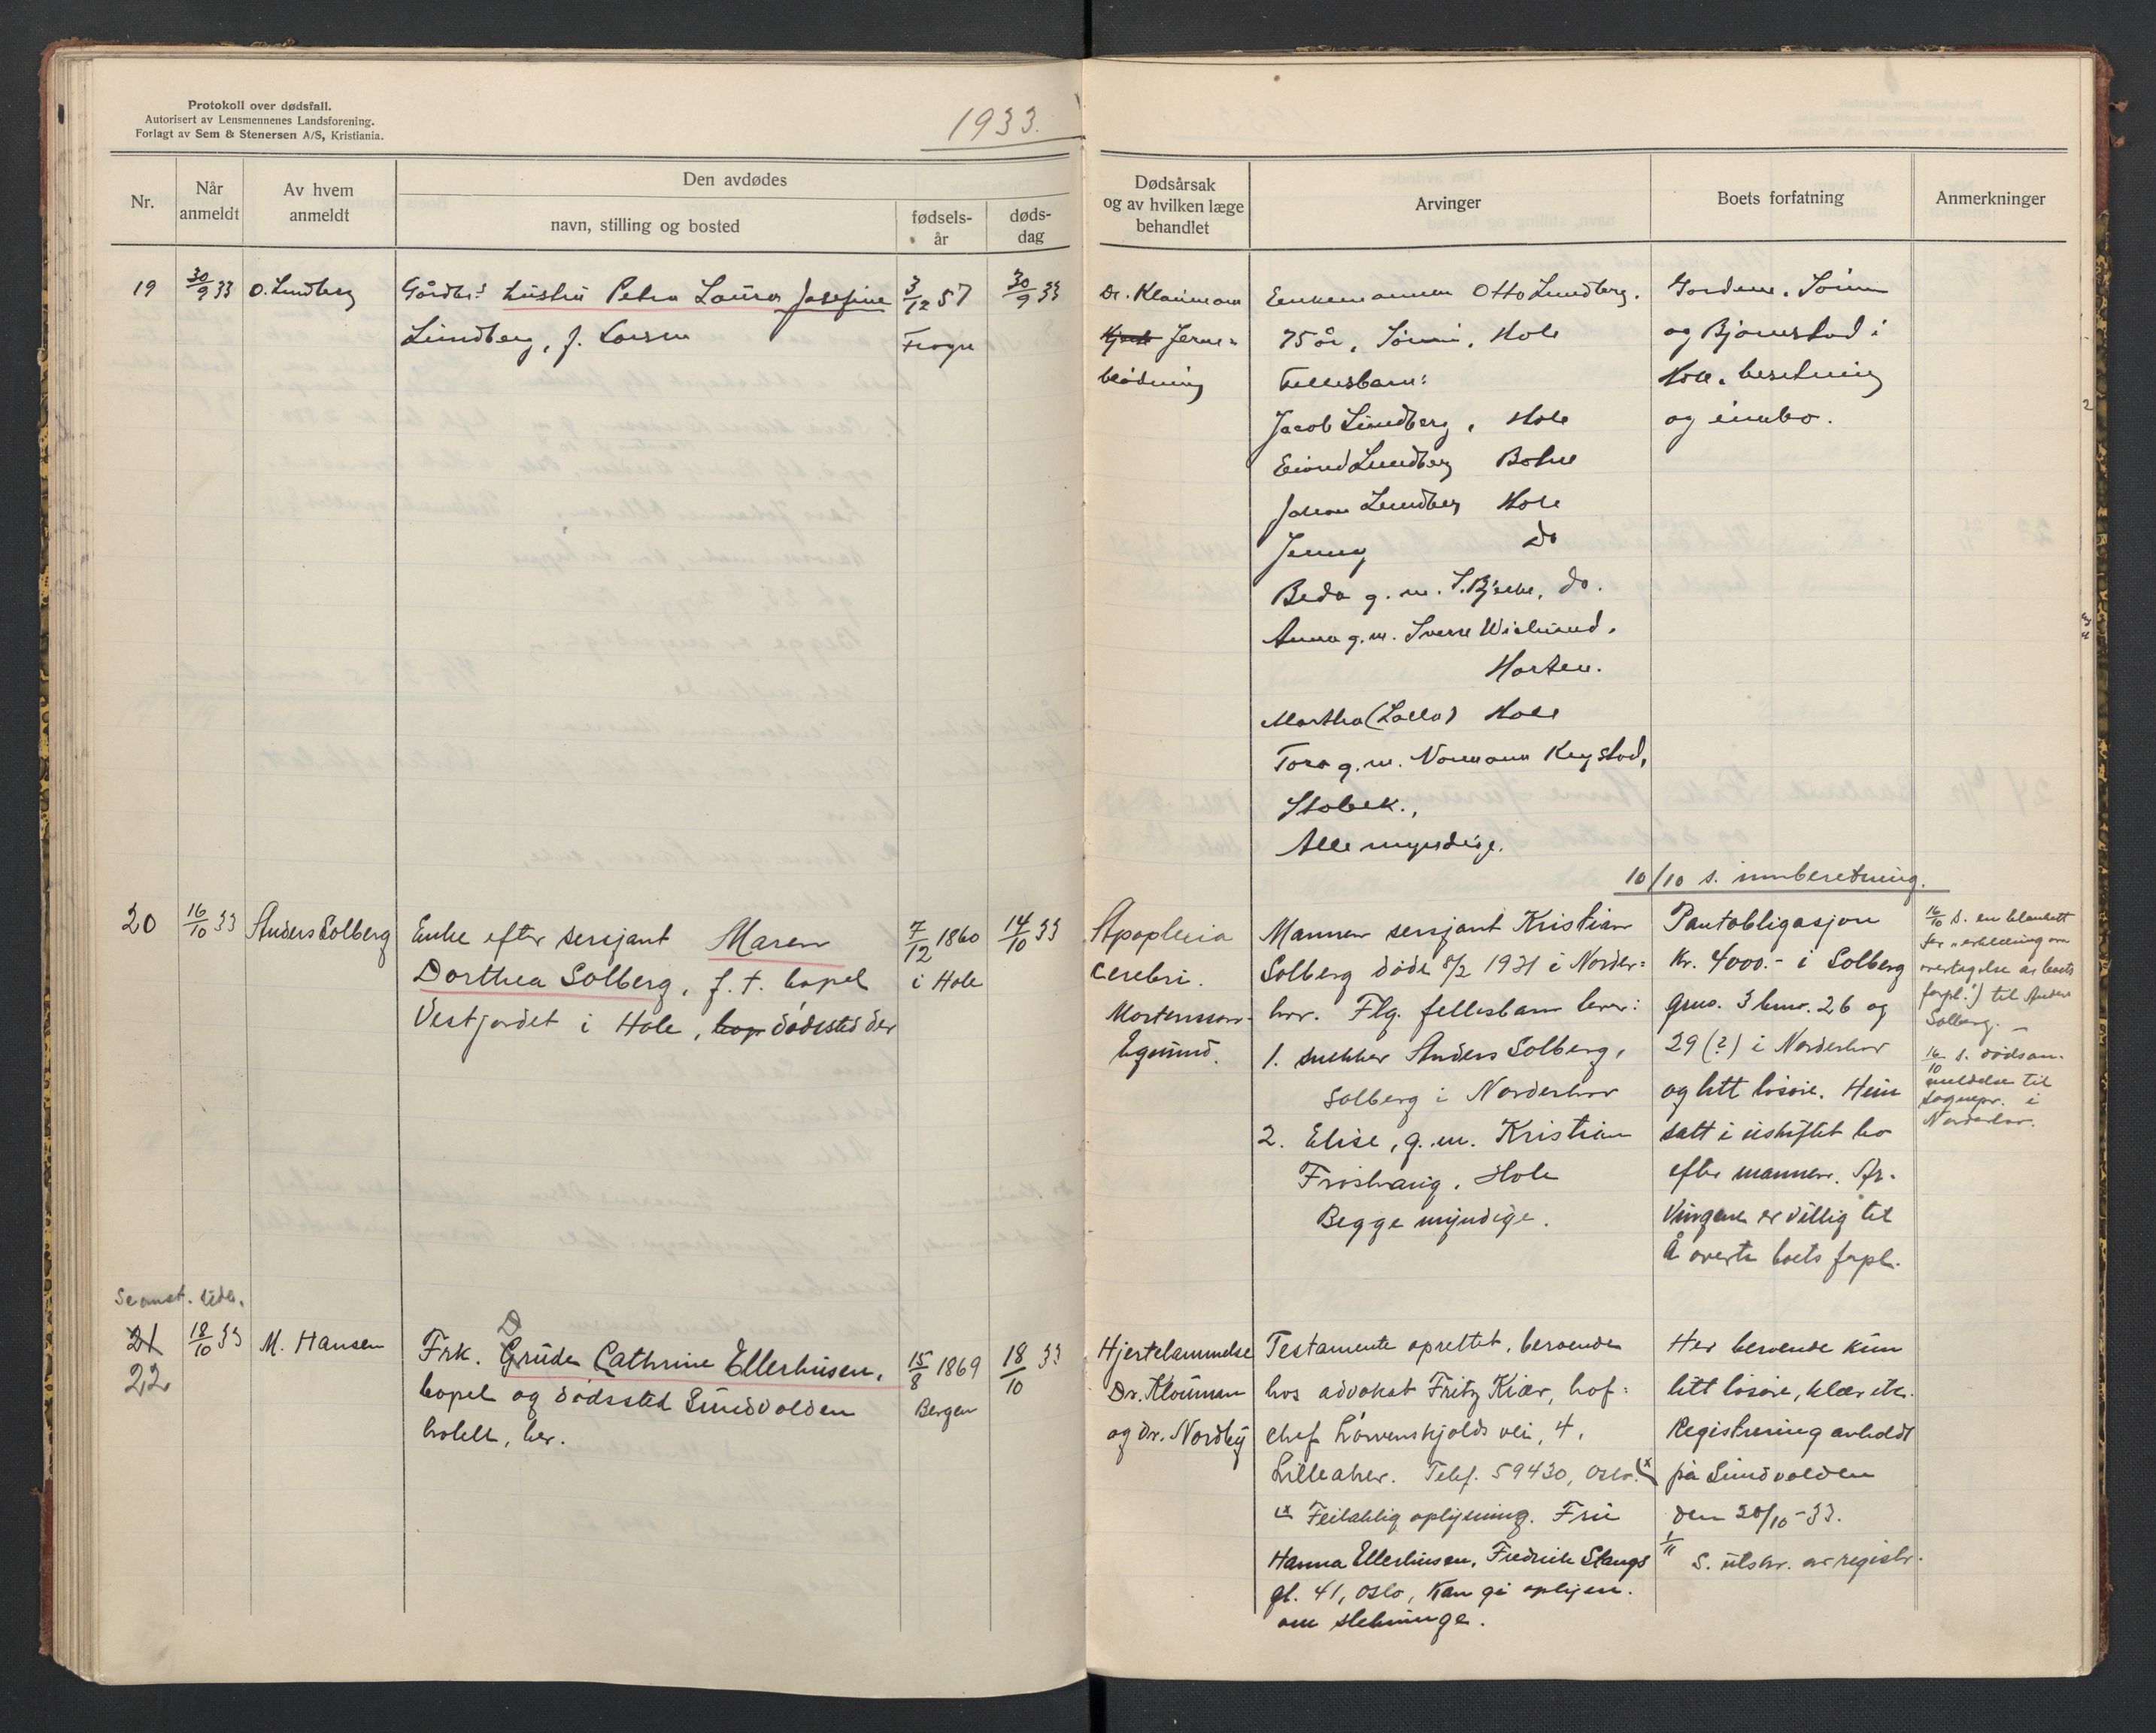 Protokoll over dødsfall.
Autorisert av Lensmennenes Landsforening.
Forlagt av Sem & Stenersen A/S, Kristiania.
1933.
Nr.
Når anmeldt
Av hvem anmeldt
Den avdødes
navn, stilling og bosted
fødsels-år
døds-dag
Dødsårsak og av hvilken læge behandlet
Arvinger
Boets forfatning
Anmerkninger
19
30/9 33
O. Lundberg
Gårdbr.s hustru Petra Laura Josefine
Lundberg, f. Larsen
3/12 57
Frogn
30/9 33
Dr. Klouman
Hjerne=
blødning
Enkemannen Otto Lundberg.
75 år, Sønni, Hole
Fellesbarn:
Jacob Lundberg, Hole
Eivind Lundberg Hole
Johan Lundberg Hole
Jenny do
Beda g. m. do.
Anna g. m. Sverre Wiklund,
Horten.
Martha (Lalla) Hole
Tora g. m. Normann
Stabek.,
Alle myndige.
Gardene. Sønni
og Bjørnstad i
Hole. besetning
og innbo.
10/10 s. innberetning.
20
16/10 33
Anders Solberg
Enke efter sersjant Maren
Dorthea Solberg, f. t. bopel
Vestjordet i Hole, bop dødssted der
7/12 1860
i Hole
14/10 33
Apoplexia
cerebri.
Mortensson-
Egnund.
Mannen sersjant Kristian
Solberg døde 8/2 1931 i Norder=
hov. Flg. fellesbarn lever:
1. snekker Anders Solberg,
Solberg i Norderhov
2. Elise, g. m. Kristian
Frøshaug, Hole
Begge myndige.
Pantobligasjon
kr. 4000.- i Solberg
gno. 3 bnr. 26 og
29 (?) i Norderhov
og litt løsøre. Hun
satt i uskiftet bo
efter mannen. Ar-
vingene er villig til
å overta boets forpl.
16/10 s. en blankett
for "erklæring om
overtagelse av boets
forpl.") til Anders
Solberg. -
16/10 s. dødsan-
meldelse til
sognepr. i
Norderhov.
Se omst. side.
21
22
18/10 33
M. Hansen
D
Frk. Gruda Cathrine Ellerhusen,
bopel og dødssted Sundvolden
hotell, her.
15/8 1869
Bergen
18/10 33
Hjertelammelse
Dr. Klouman
og Dr. Nordby
Testamente oprettet, beroende
hos advokat Fritz Kiær, hof=
chef Løvenskjolds vei, 4,
Lilleaker. Telf. 59430, Oslo. (x
(x Feilaktig oplysning. Fru
Hanna Ellerhusen, Fredrik Stangs
gt. 41, Oslo, kan gi oplysn.
om slektninge.
Her beroende kun
litt løsøre, klær etc.
Registrering avholdt
på Sundvolden
den 20/10-33.
1/11 s. utskr. av registr.